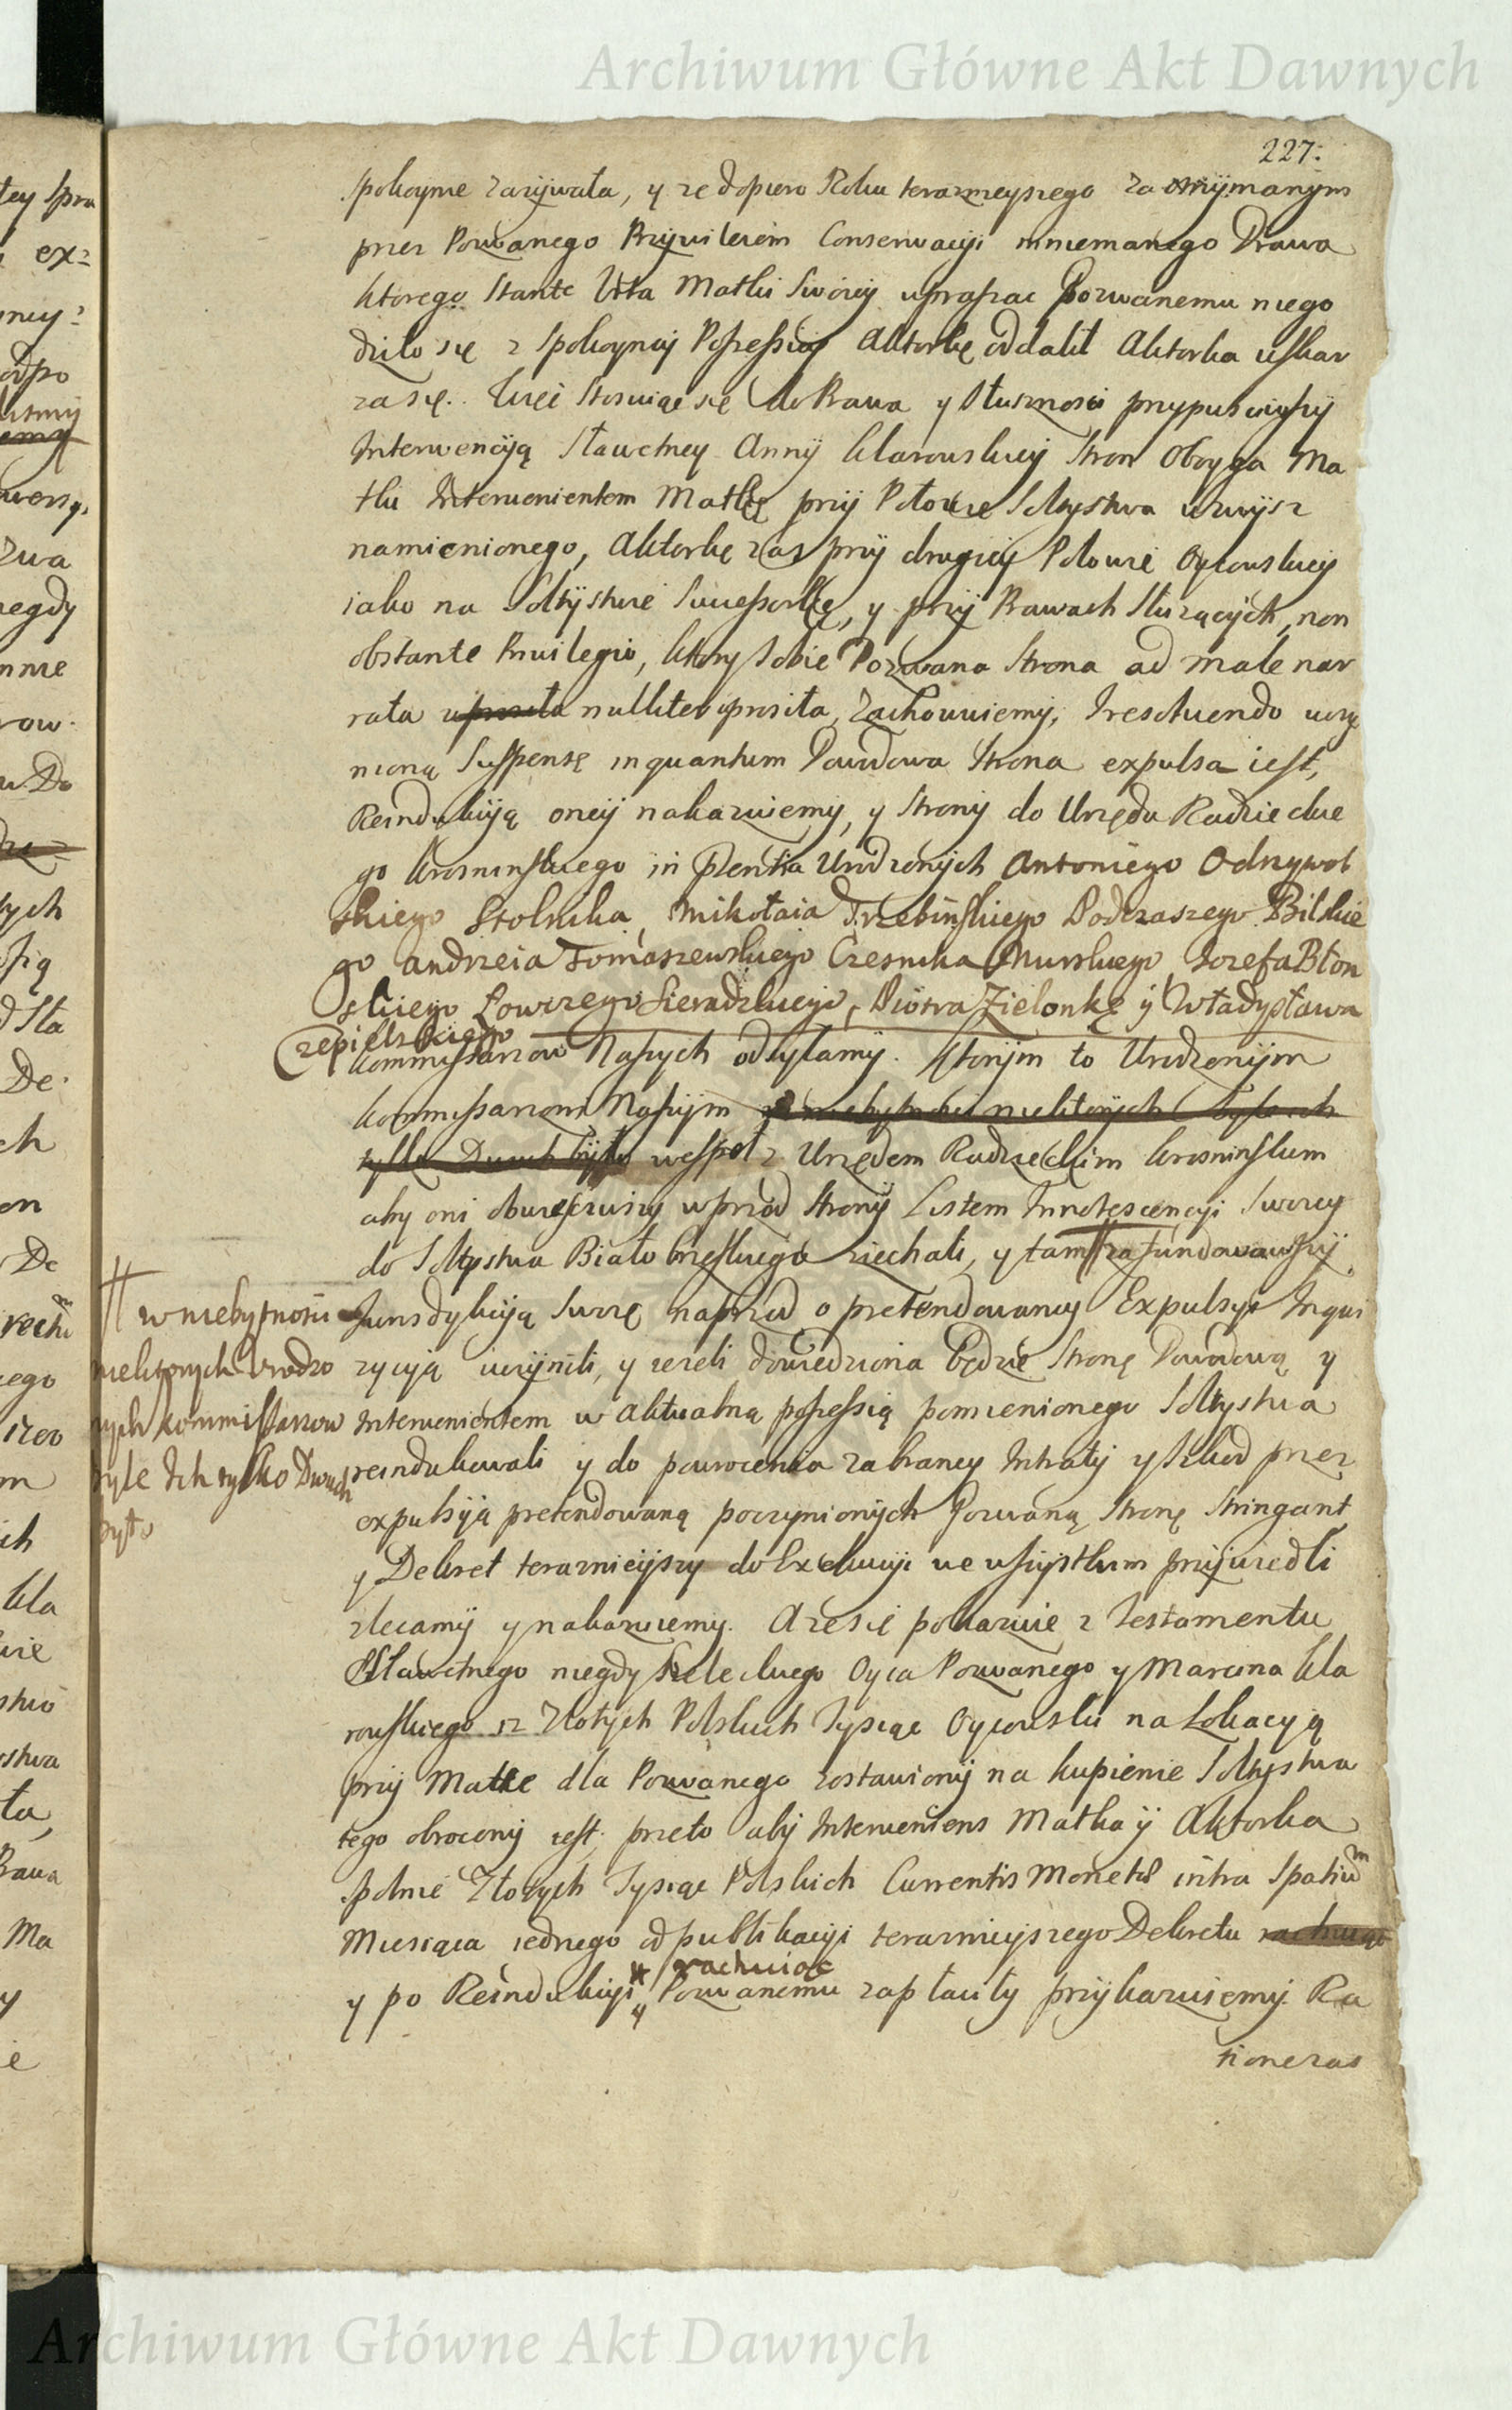 Archiwum Główne Akt Dawnych
227:
spokoynie zażywała, y że dopiero Roku teraznieyszego za otrzymanym
przez Pozwanego Przywileiem Conserwacyi mniemanego Prawa
ktorego Stante Vita Matki Swoiey upraszac Pozwanemu niego
dziło się z spokoyney Possessyi Aktorkę oddalił Aktorka uskar
za się. Więc Stosuiąc się do Prawa y Słusznosci przypusciwszy
Interwencyią Sławetney Anny Klarowskiey Stron Oboyga Ma
tki Intervenientem Matkę przy Połowie Sołtystwa wzwysz
namienionego, Aktorkę zas przy drugiey Połowie Oycowskiey
iako na Sołtystwie Successorkę, y przy Prawach Służących, non
obstante Privilegio, ktory sobie Pozwana Strona ad male nar
rata uprosiła nulliter uprosiła, Zachowuiemy, Irescituendo uczy
nioną Suspensę inquantum Powodowa Strona expulsa iest,
Reindukcyią oney nakazuiemy, y Strony do Urzędu Radzieckie
go Krosninskiego in Plentia Urodzonych Antoniego Odrzywol
skiego Stolnika, Mikołaia Trzebinskiego Podczaszego Bilskie
go Andrzeia Tomaszewskiego Czesnika Nurskiego, Jozefa Błon
skiego Łowczego Sieradzkiego, Piotra Zielonkę y Władysława
Czepielskiego
Kommissarzow Naszych odsyłamy. Ktorym to Urodzonym
Kommissarzom Naszym w niebytnosci niektorych byle ich
tylko Dwuch było wespoł z Urzędem Radzieckim Krosninskim
aby oni obwiesciwszy wprzod Strony Listem Innotescencyi Swoiey
do Sołtystwa Białobrzeskiego ziechali, y tam # zafundowawszy
# w niebytnosci
niektorych Urodzo
nych Kommissarzow
byle Ich tylko Dwuch
było
Jurisdykcyią Swoię naprzod o pretendowaney Expulsyi Inqui
zycyią uczynili, y iezeli dowiedziona będzie Stronę Powodową y
Intervenientem w aktualną possessią pomienionego Sołtystwa
reindukowali y do powrocenia zabraney Intraty y Szkod przez
expulsyią pretendowaną poczynionych Pozwaną Stronę Stringant
y Dekret teraznieyszy do Exekucyi we wszystkim przywiedli
zlecamy y nakazuiemy. A ze się pokazuie z Testamentu
Sławetnego niegdy Sieleckiego Oyca Pozwanego y Marcina Kla
rowskiego iz Złotych Polskich Tysiąc Oycowski na Lokacyią
przy Matce dla Pozwanego zostawiony na kupienie Sołtystwa
tego obrocony iest, przeto aby Interveniens Matka y Aktorka
spolnie Złotych Tysiąc Polskich Currentis Monetæ intra Spatium
Miesiąca iednego od publikacyi teraznieyszego Dekretu rachuiąc
rachuiąc
y po Reindukcyi Pozwanemu zapłaciły przykazuiemy. Ra
tione zas
Archiwum Główne Akt Dawnych